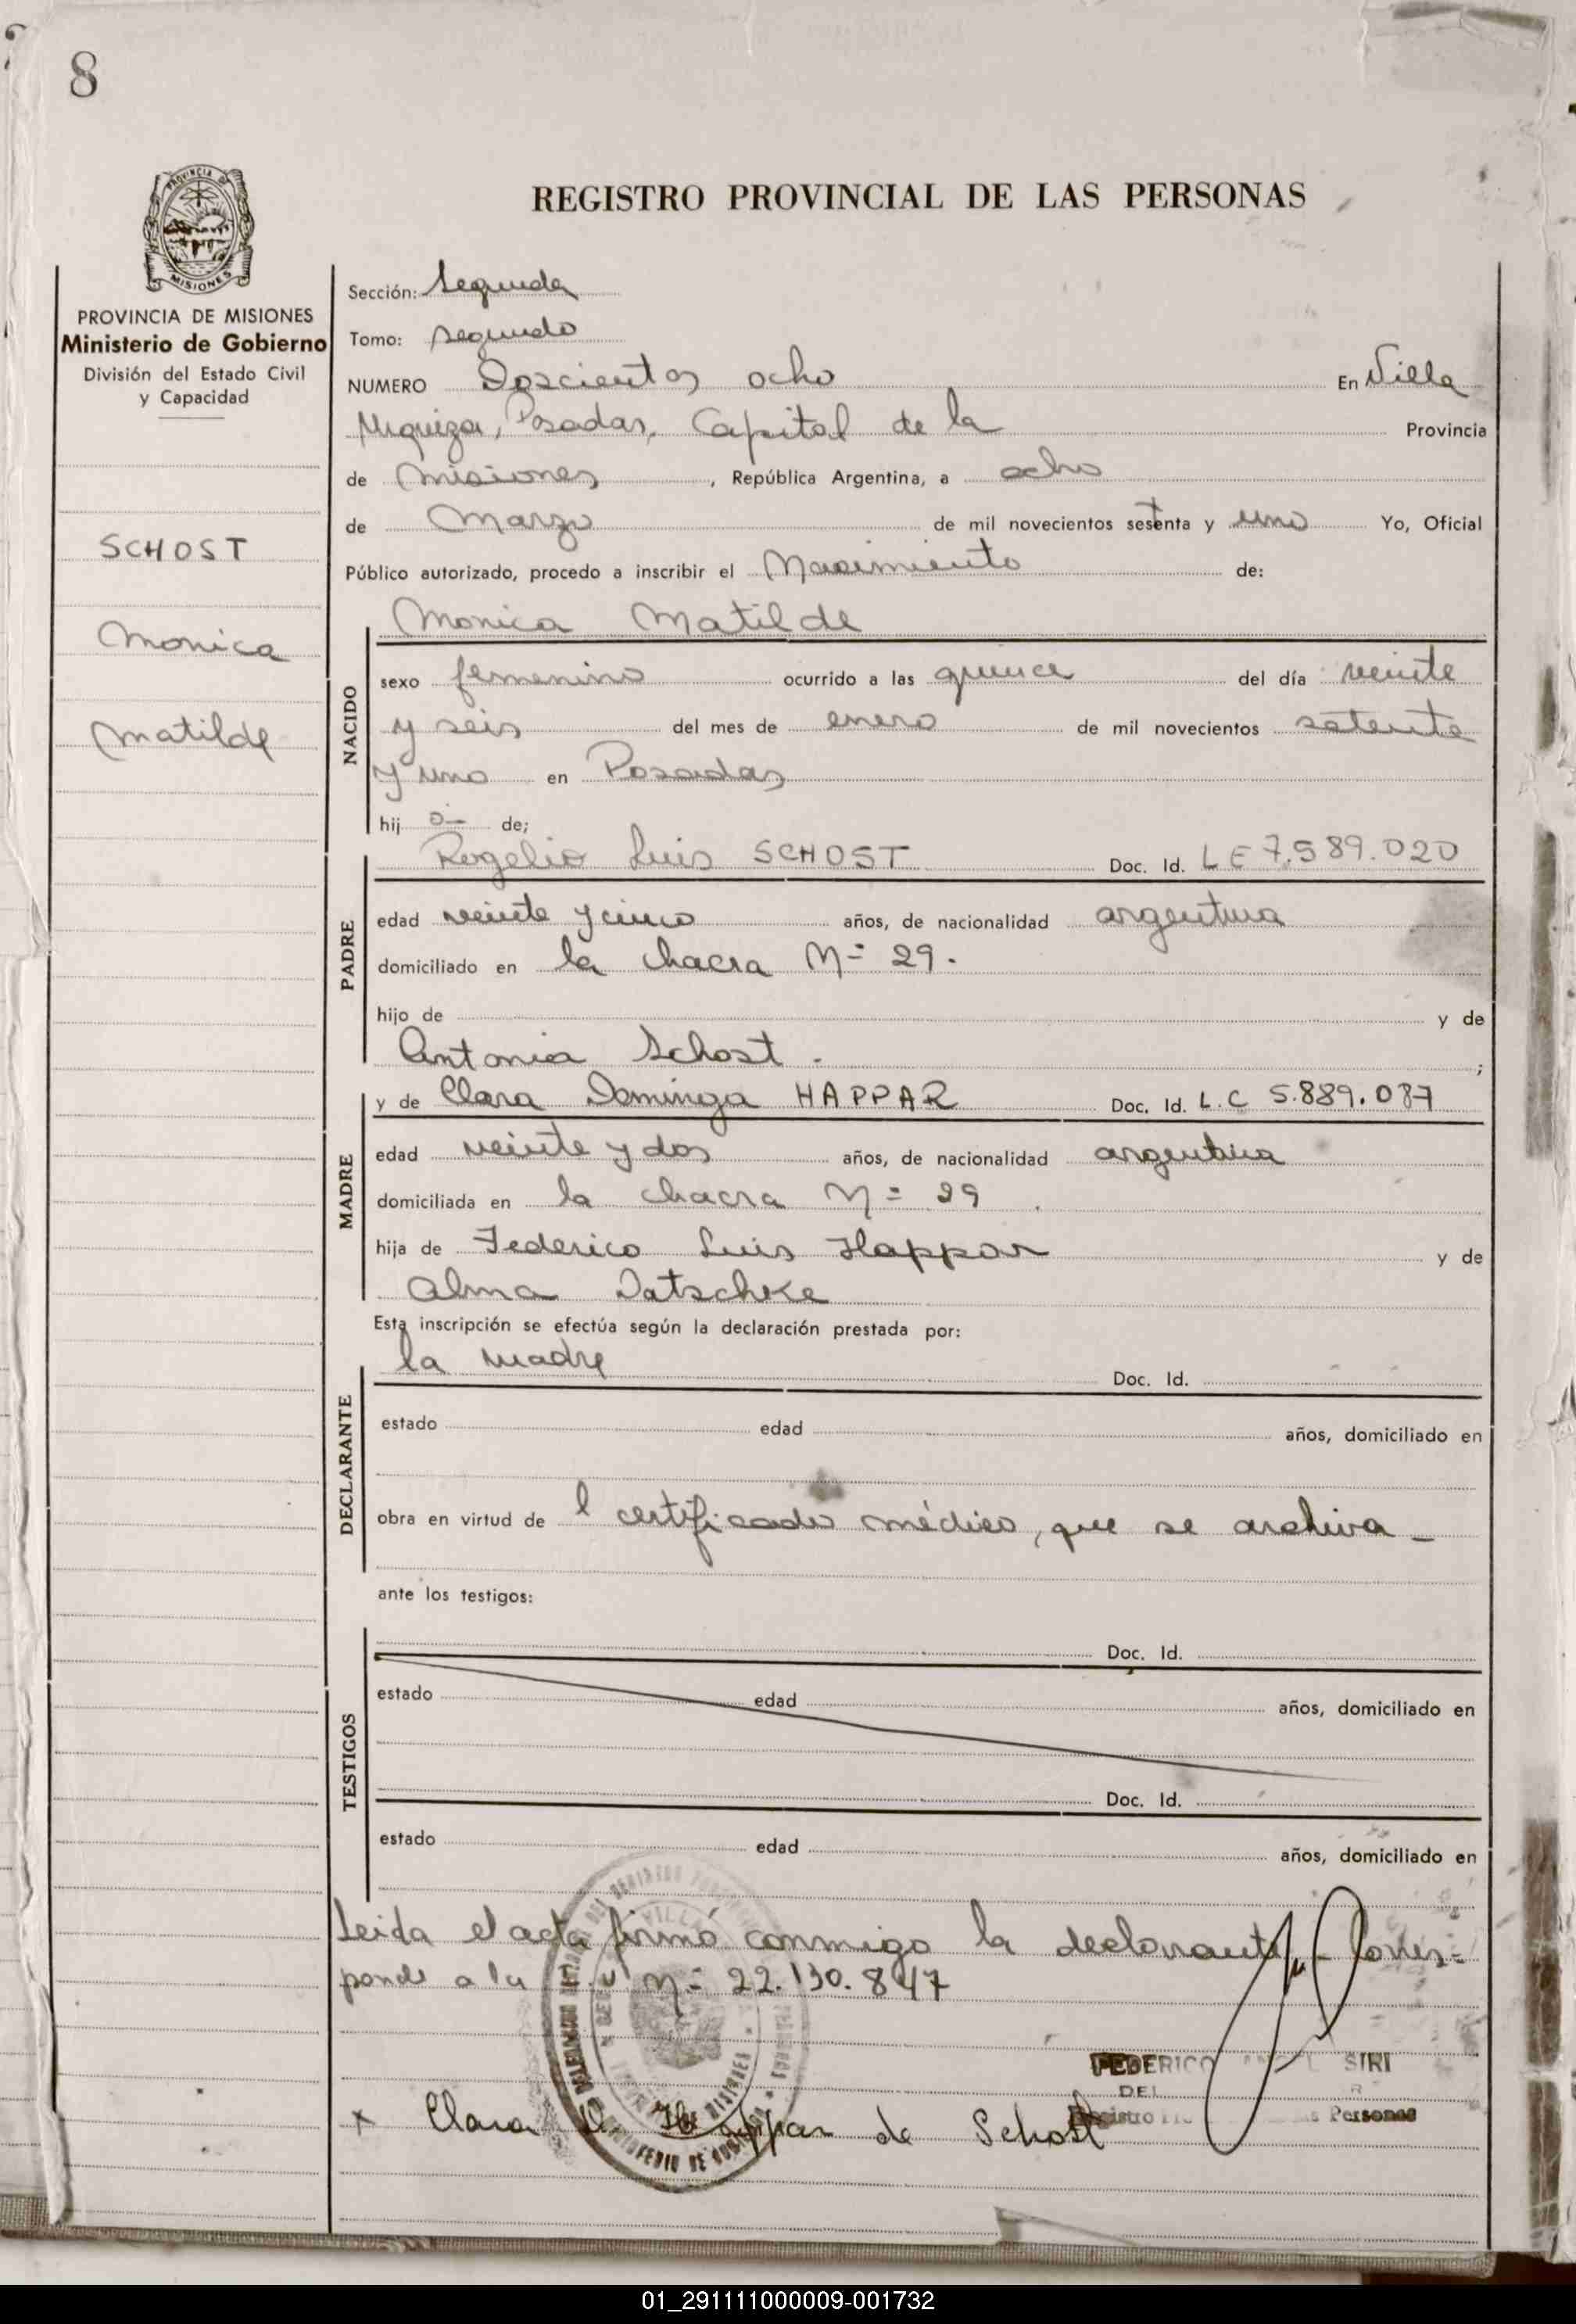 8
REGISTRO PROVINCIAL DE LAS PERSONAS
PROVINCIA DE MISIONES
Ministerio de Gobierno
División del Estado Civil
y Capacidad
SCHOST
Monica
Matilde
Sección: Segunda
Tomo: segundo
NUMERO Doscientos ocho En Villa
Urquiza, Posadas, Capital de la Provincia
de Misiones, República Argentina, a ocho
de Marzo de mil novecientos setenta y uno Yo, Oficial
Público autorizado, procedo a inscribir el Nacimiento de:
Monica Matilde
NACIDO
sexo femenino ocurrido a las quince del día veinte
y seis del mes de enero de mil novecientos setenta
y uno en Posadas
hij a- de;
Rogelio Luis SCHOST Doc. Id. LE 7.589.020
PADRE
edad veinte y cinco años, de nacionalidad argentina
domiciliado en la chacra Nº 29.
hijo de y de
Antonia Schost. ;
y de Clara Dominga HAPPAR Doc. Id. L.C 5.889.087
MADRE
edad veinte y dos años, de nacionalidad argentina
domiciliada en la chacra Nº 29.
hija de Federico Luis Happar y de
Alma Datschke
Esta inscripción se efectúa según la declaración prestada por:
la madre Doc. Id.
DECLARANTE
estado edad años, domiciliado en
obra en virtud de l certificado médico, que se archiva-
ante los testigos:
TESTIGOS
Doc. Id.
estado edad años, domiciliado en
Doc. Id.
estado edad años, domiciliado en
Leida el acta firmó conmigo la declarante.- Corres=
ponde a la Nº 22.130.847
FEDERICO SIRI
Personas
x Clara D. Happar de Schost
01_291111000009-001732